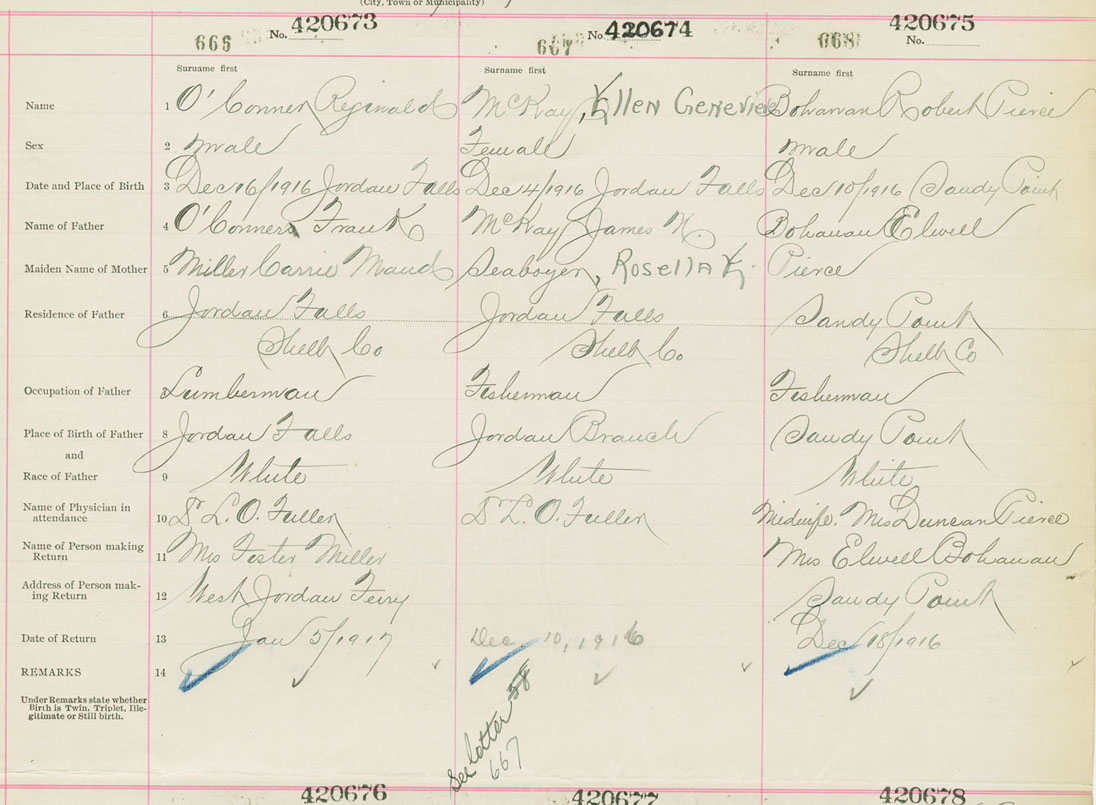 (City, Town or Municipality)
No. 420673 No. 420674 No. 420675
666 667 668
Surname first Surname first Surname first
Name 1 O'Conner Reginald McKay, Ellen Genevieve Bohanan Robert Pierce
Sex 2 Male Female Male
Date and Place of Birth 3 Dec 16/1916 Jordan Falls Dec 4/1916 Jordan Falls Dec 10/1916 Sandy Point
Name of Father 4 O'Conners Frank McKay James N. Bohanan Elwell
Maiden Name of Mother 5 Miller Carrie Maud Seaboyer, Rosella Pierce
Residence of Father 6 Jordan Falls Jordan Falls Sandy Point
Shelb Co Shelb Co Shelb Co
Occupation of Father Lumberman Fisherman Fisherman
Place of Birth of Father 8 Jordan Falls Jordan Branch Sandy Point
and
Race of Father 9 White White White
Name of Physician in
attendance 10 Dr L. O. Fuller Dr L. O. Fuller Midwife. Mrs Duncan Pierce
Name of Person making
Return 11 Mrs Foster Miller Mrs Elwell Bohanan
Address of Person mak-
ing Return 12 West Jordan Ferry Sandy Point
Date of Return 13 Jan 5/1917 Dec 10, 1916 Dec 18/1916
REMARKS 14
Under Remarks state whether
Birth is Twin, Triplet, Ille-
gitimate or Still birth.
See letter 38
667
420676 420677 420678